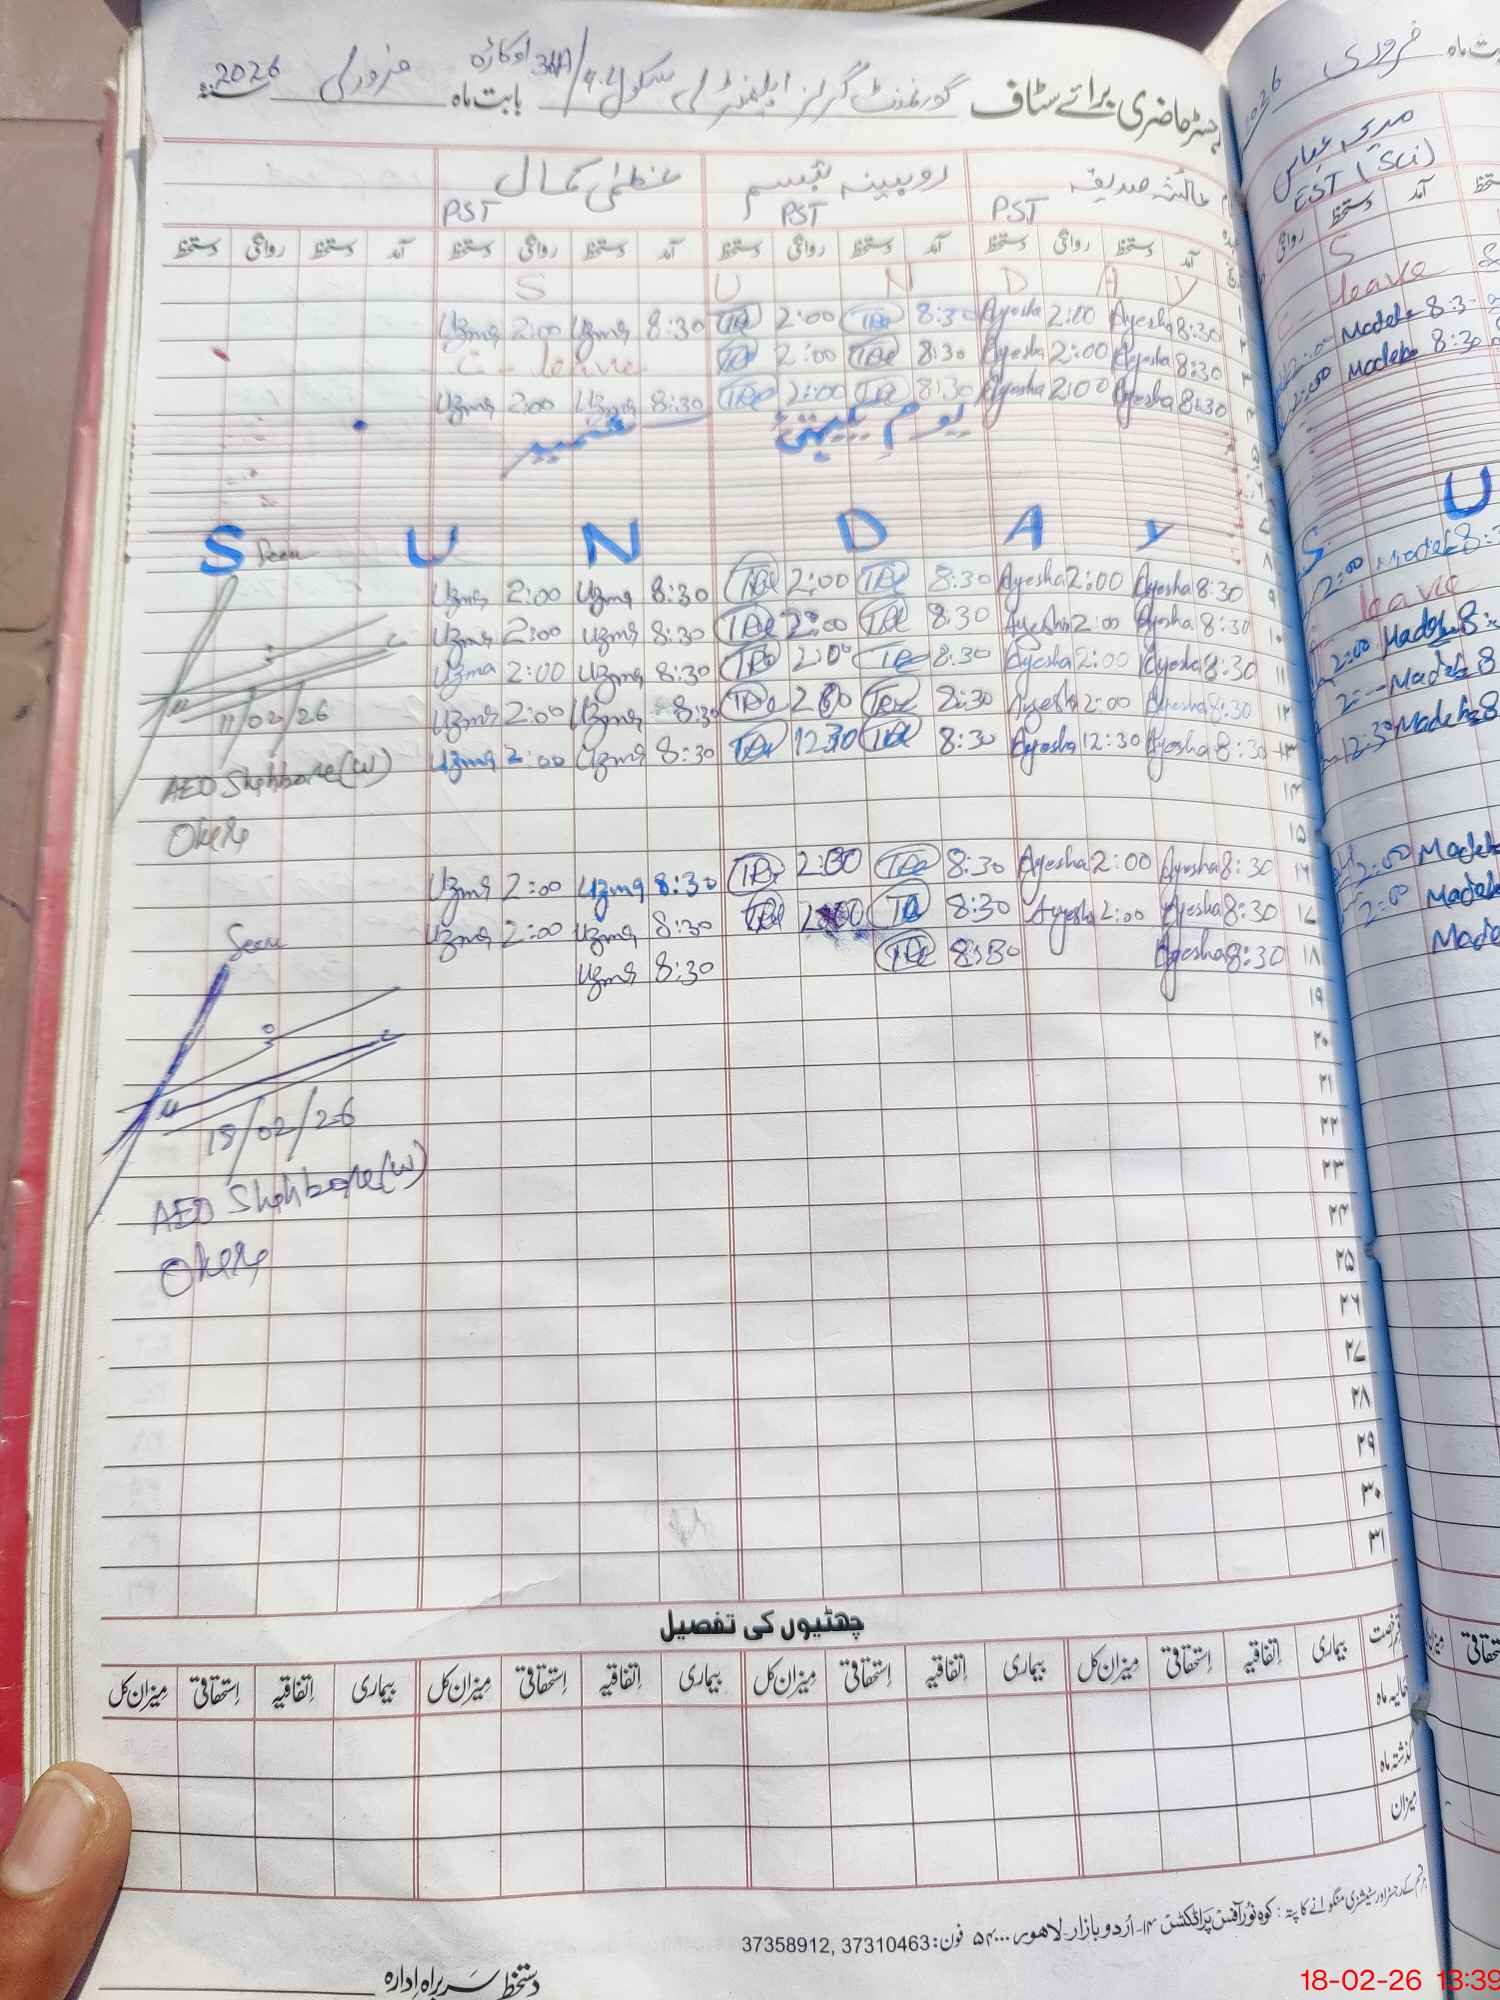 رجسٹر حاضری برائے سٹاف گورنمنٹ گرلز ایلیمنٹری سکول 34A/4.L اوکاڑہ بابت ماہ فروری سنہ 2026
عائشہ صدیقہ روبینہ تبسم عظمٰی کمال
PST PST PST
آمد دستخط روانگی دستخط آمد دستخط روانگی دستخط آمد دستخط روانگی دستخط آمد دستخط روانگی دستخط
S U N D A Y
Uzma 2:00 Uzma 8:30 2:00 8:30 Ayesha 2:00 Ayesha 8:30
C - leave 2:00 8:30 Ayesha 2:00 Ayesha 8:30
Uzma 2:00 Uzma 8:30 2:00 8:30 Ayesha 2:00 Ayesha 8:30
یومِ یکجہتی کشمیر
S U N D A Y
Seen
Uzma 2:00 Uzma 8:30 2:00 8:30 Ayesha 2:00 Ayesha 8:30 ۹
Uzma 2:00 Uzma 8:30 2:00 8:30 Ayesha 2:00 Ayesha 8:30 ۱۰
Uzma 2:00 Uzma 8:30 2:00 8:30 Ayesha 2:00 Ayesha 8:30 ۱۱
Uzma 2:00 Uzma 8:30 2:00 8:30 Ayesha 2:00 Ayesha 8:30 ۱۲
Uzma 2:00 Uzma 8:30 12:30 8:30 Ayesha 12:30 Ayesha 8:30 ۱۳
11/02/26
AEO Shahbore (W)
۱۴
۱۵
Uzma 2:00 Uzma 8:30 2:00 8:30 Ayesha 2:00 Ayesha 8:30 ۱۶
Uzma 2:00 Uzma 8:30 2:00 8:30 Ayesha 2:00 Ayesha 8:30 ۱۷
Uzma 8:30 8:30 Ayesha 8:30 ۱۸
Seen
18/02/26
AEO Shahbore (W)
۱۹
۲۰
۲۱
۲۲
۲۳
۲۴
۲۵
۲۶
۲۷
۲۸
۲۹
۳۰
۳۱
چھٹیوں کی تفصیل
قسم رخصت بیماری اِتفاقیہ اِستحقاقی میزان کل بیماری اِتفاقیہ اِستحقاقی میزان کل بیماری اِتفاقیہ اِستحقاقی میزان کل بیماری اِتفاقیہ اِستحقاقی میزان کل
حالیہ ماہ
گذشتہ ماہ
میزان
ہر قسم کے رجسٹر اور سٹیشنری منگوانے کا پتہ: کوہ نور آفس پراڈکٹس ۱۴-اُردو بازار۔لاہور ۵۴۰۰۰ فون: 37310463, 37358912
دستخط سَربراہِ اِدارہ
بابت ماہ فروری 2026
مدیحہ عباس
EST (Sci)
آمد دستخط روانگی
S
leave
Madeha 8:3
2:00 Madeha 8:30
U
S
2:00 Madeha 8:3
leave
2:00 Madeha 8:
Madeha 8
12:30 Madeha 8
2:00 Madeha
2:00 Madeha
Madeha
18-02-26 13:39